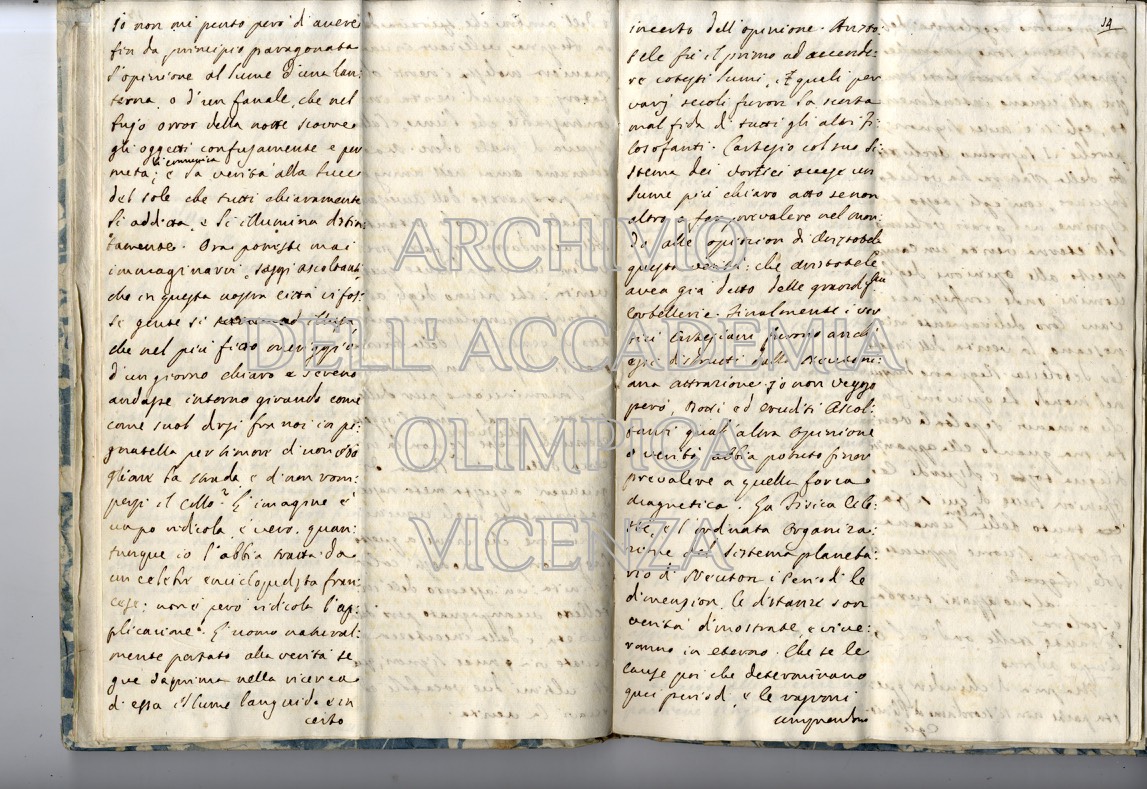 Io non mi pento però d'avere
fin da principio paragonata
l'opinione al lume d'una lan:
terna, o d'un fanale, che nel
bujo orror della notte scuopre
gli oggetti confusamente e per
metà; e la verità alla luce
del sole che tutti chiaramente
li addita, e li illumina distin:
tamente. Ora potreste mai
immaginarvi, saggi ascoltanti
che in questa nostra città vi fos:
se gente sì
che nel più fitto meriggio
d'un giorno chiaro e sereno
andasse intorno girando come
come suol dirsi fra noi in pi:
gnatella per timore di non
la strada e di non rom:
persi il collo? L'imagine è
un po ridicola, è vero, quan:
tunque io l'abbia tratta da
un celebre enciclopedista fran:
cese: non è però ridicola l'ap:
plicazione. L'uomo natural:
mente portato alla verità se
gue dapprima nella ricerca
di essa il lume languido e in
certo
14
incerto dell'opinione. Aristo
tele fu il primo ad accende:
re cotesti lumi, i quali per
varj secoli furon la scorta
mal fida di tutti gli altri Fi:
losofanti. Cartesio col suo si:
stema dei vortici accese un
lume più chiaro atto se non
altro a far prevalere nel mon:
do alle opinion di Aristotele
questa verità: che Aristotele
avea già detto delle grandissime
corbellerie. Finalmente i vor
tici Cartesiani furono anch'
essi distrutti dalla Neutoni:
ana attrazione. Io non veggo
però, dotti ed eruditi Ascol:
tanti qual altra opinione
o verità abbia potuto finor
prevalere a quella forza
magnetica. La Fisica Cele:
ste, e l'ordinata organiza:
zione del sistema planeta:
rio di Neuton i periodi le
dimension, le distanze son
verità dimostrate, e vive:
ranno in eterno. Che se le
cause poi che determinano
quei periodi, e le ragioni
ARCHIVIO
DELL'ACCADEMIA
OLIMPICA
VICENZA